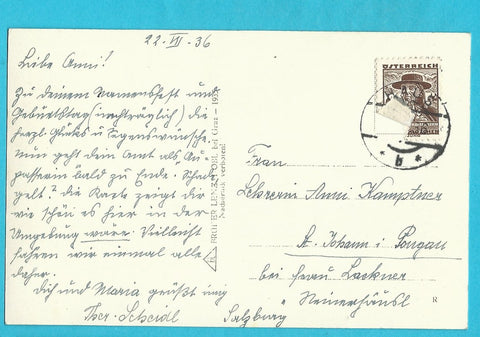 22-VII-36
Liebe Anni!
Zu deinem Namensfest und
Geburtstag (nachträglich) die
herzl. Glücks u Segenswünsche.
Nun geht dein Amt als Auf-
passerin bald zu Ende. Schad
gelt? die Karte zeigt dir
wie schön es hier in der
Umgebung wäre. Vielleicht
fahren wir einmal alle
daher.
Dich und Maria grüßt innig
Ther. Scherdl
bei Graz - 1935
Nachdruck verboten!
ÖSTERREICH
Frau
Anni Kamptner
St. Johann i. Pongau
bei Frau Lackner
Salzburg
R